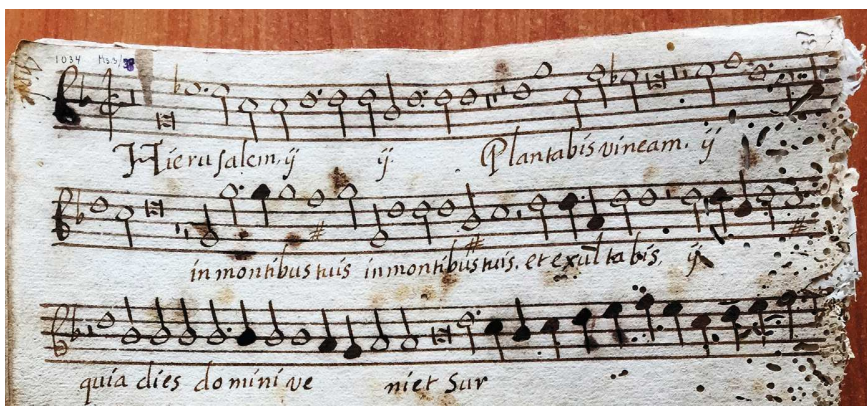 1034 Ms.3/38
Hierusalem, ij ij. Plantabis vineam. ij
in montibus tuis in montibus tuis. et exultabis, ij
quia dies domini ve niet Sur